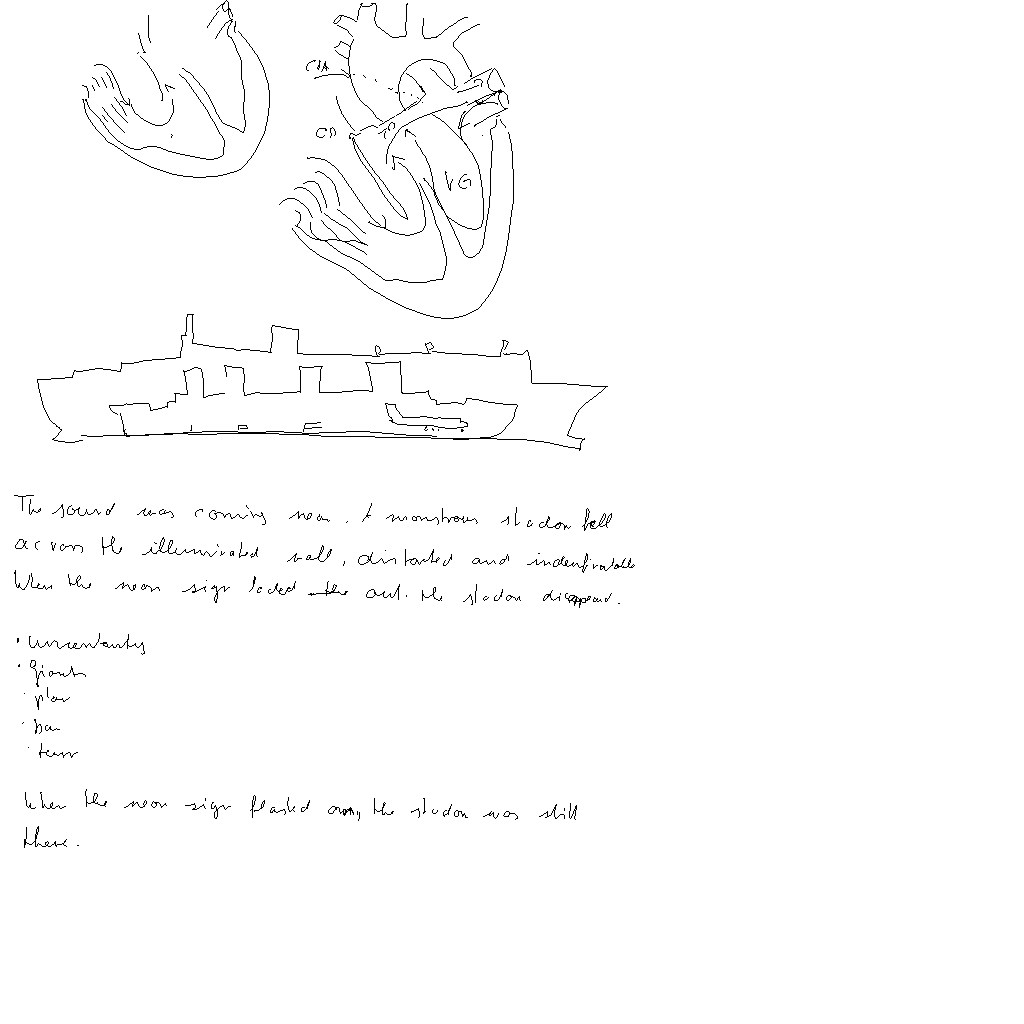 CIA
CD
VG
The sound was coming near. A monstrous shadow fell
across the illuminated wall, distorted and
When the neon sign faded the out. the shadow disappeared.
· uncertainty
· Giants
· plan
·
·
When the neon sign flashed the shadow was still
there.